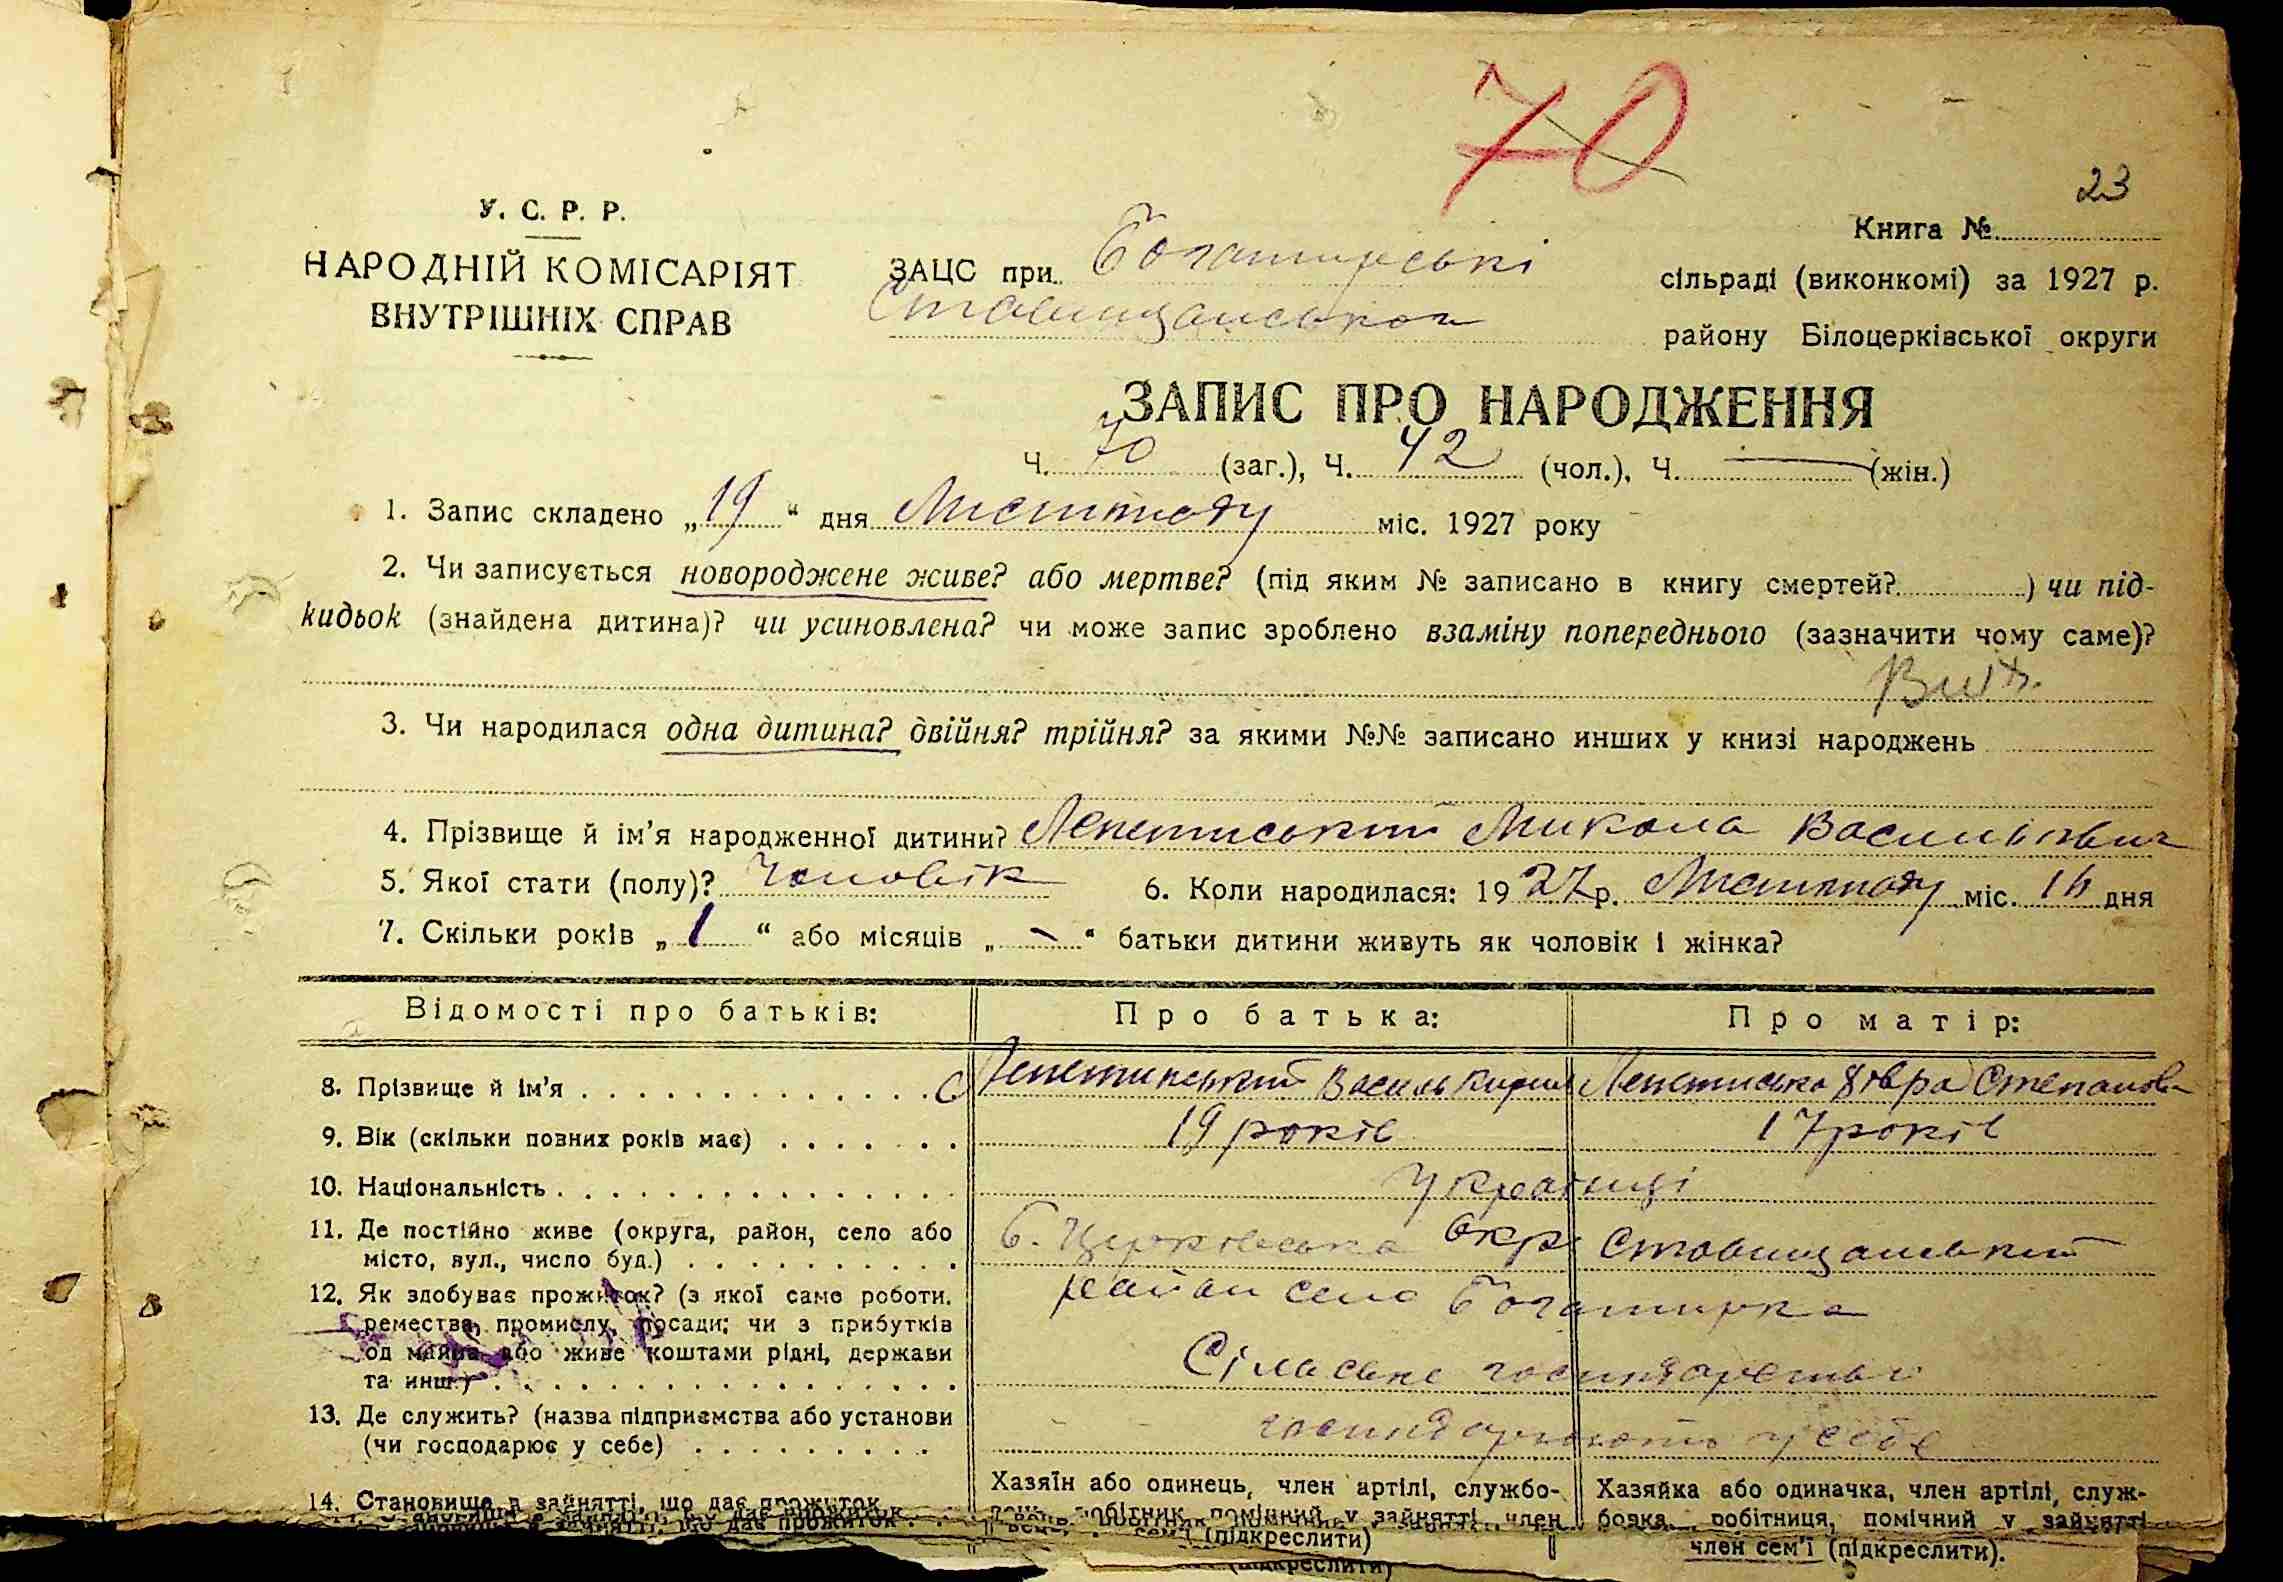 70
23
У. С. Р. Р.
НАРОДНІЙ КОМІСАРІЯТ
ВНУТРІШНІХ СПРАВ
Книга №
ЗАЦС при Богатирські сільраді (виконкомі) за 1927 р.
Ставищанського району Білоцерківської округи
ЗАПИС ПРО НАРОДЖЕННЯ
Ч. 70 (заг.), Ч. 42 (чол.), Ч. — (жін.)
1. Запис складено „19“ дня Листопаду міс. 1927 року
2. Чи записується новороджене живе? або мертве? (під яким № записано в книгу смертей? ) чи під-
кидьок (знайдена дитина)? чи усиновлена? чи може запис зроблено взаміну попереднього (зазначити чому саме)?
3. Чи народилася одна дитина? двійня? трійня? за якими №№ записано инших у книзі народжень
4. Прізвище й ім'я народженної дитини? Лепетинський Микола Васильович
5. Якої стати (полу)? Чоловік 6. Коли народилася: 1927р. Листопаду міс. 16 дня
7. Скільки років „1“ або місяців „-“ батьки дитини живуть як чоловік і жінка?
Відомості про батьків: Про батька: Про матір:
8. Прізвище й ім'я Лепетинський Василь Кирил Лепетинська Степанова
9. Вік (скільки повних років має) 19 років 17 років
10. Національність Українці
11. Де постійно живе (округа, район, село або Б. Церківська окр. Ставищанський
місто, вул., число буд.) район село Богатирка
12. Як здобуває прожиток? (з якої саме роботи,
ремества, промислу, посади; чи з прибутків
од майна або живе коштами рідні, держави Сільське господарство
та инш.)
13. Де служить? (назва підприємства або установи господарюють у себе
(чи господарює у себе)
14. Становище в занятті, що дає прожиток Хазяїн або одинець, член артілі, службо- Хазяйка або одиначка, член артілі, служ-
робітник, помічний у зайнятті, член бовка, робітниця, помічний у зайнятті
сем'ї (підкреслити) член сем'ї (підкреслити).
що дає прожиток
(підкреслити)